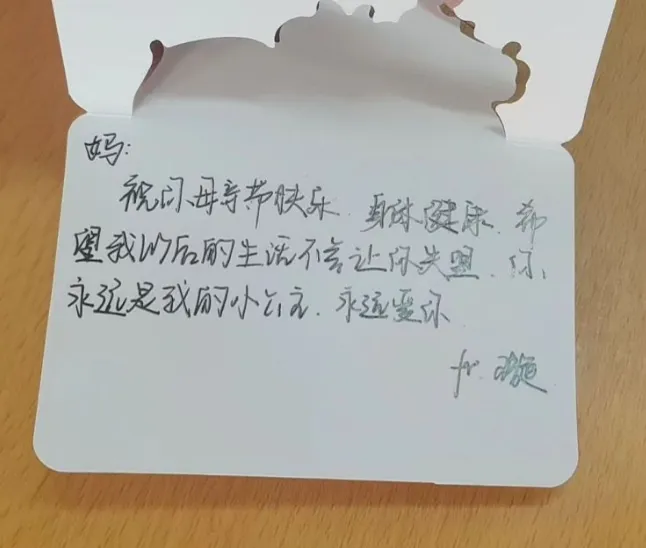 妈:
祝你母亲节快乐 身体健康. 希
望我以后的生活不会让你失望. 你
永远是我的小公主. 永远爱你
fr.